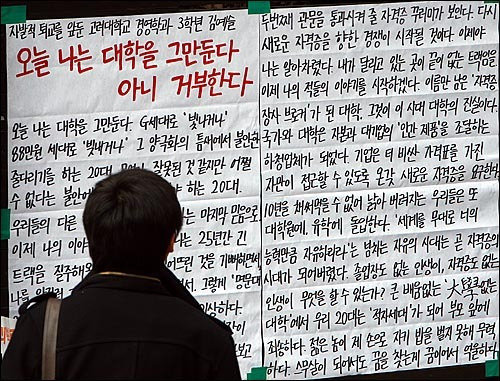 자발적 퇴교를 앞둔 고려대학교 경영학과 3학년 김예슬
오늘 나는 대학을 그만둔다
아니 거부한다
오늘 나는 대학을 그만둔다. G세대로 '빛나거나'
88만원 세대로 '빚내거나' 그 양극화의 틈새에서 불안한
줄타기를 하는 20대. 잘못된 것 같지만 어쩔
수 없다는 불안에 하는 20대.
우리들의 다른 는 마지막 믿음으로
이제 나의 이야 는 25년간 긴
트랙을 질주해 어진 것을 기뻐하면서
나를 그렇게 '명문대
두번째 관문을 통과시켜 줄 자격증 꾸러미가 보인다. 다시
새로운 자격증을 향한 경쟁이 시작될 것이다. 이제야
나는 알아차렸다. 내가 달리고 있는 곳이 끝이 없는 트랙임을
이제 나의 적들의 이야기를 시작하겠다. 이름만 남은 '자격증
장사 브로커'가 된 대학. 그것이 이 시대 대학의 진실이다.
국가와 대학은 자본과 대기업의 '인간 제품'을 조달하는
하청업체가 되었다. 기업은 더 비싼 자격표를 가진
자만이 접근할 수 있도록 온갖 새로운 자격증을 요구한다.
10년을 채 써먹을 수 없어 낡아 버려지는 우리들은 또
대학원에, 유학에 돌입한다. '세계를 무대로 너의
능력만큼 자유하리라'는 넘치는 자유의 시대는 곧 자격증의
시대가 되어버렸다. 졸업장도 없는 인생이, 자격증도 없는
인생이 무엇을 할 수 있는가? 큰 배움없는 '大學없는
대학'에서 우리 20대는 '적자세대'가 되어 부모 앞에
죄송하다. 젊은 놈이 제 손으로 자기 밥을 벌지 못해 무력
하다. 스무살이 되어서도 꿈을 찾는게 꿈이어서 억울하다.